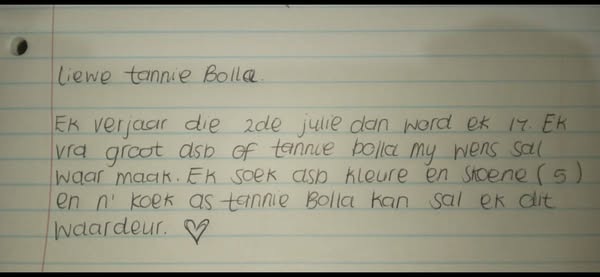 Liewe tannie Bolla.
Ek verjaar die 2de julie dan word ek 17. Ek
vra groot asb of tannie bolla my wens sal
waar maak. Ek soek asb kleure en skoene (5)
en n' koek as tannie Bolla kan sal ek dit
waardeur. ♡